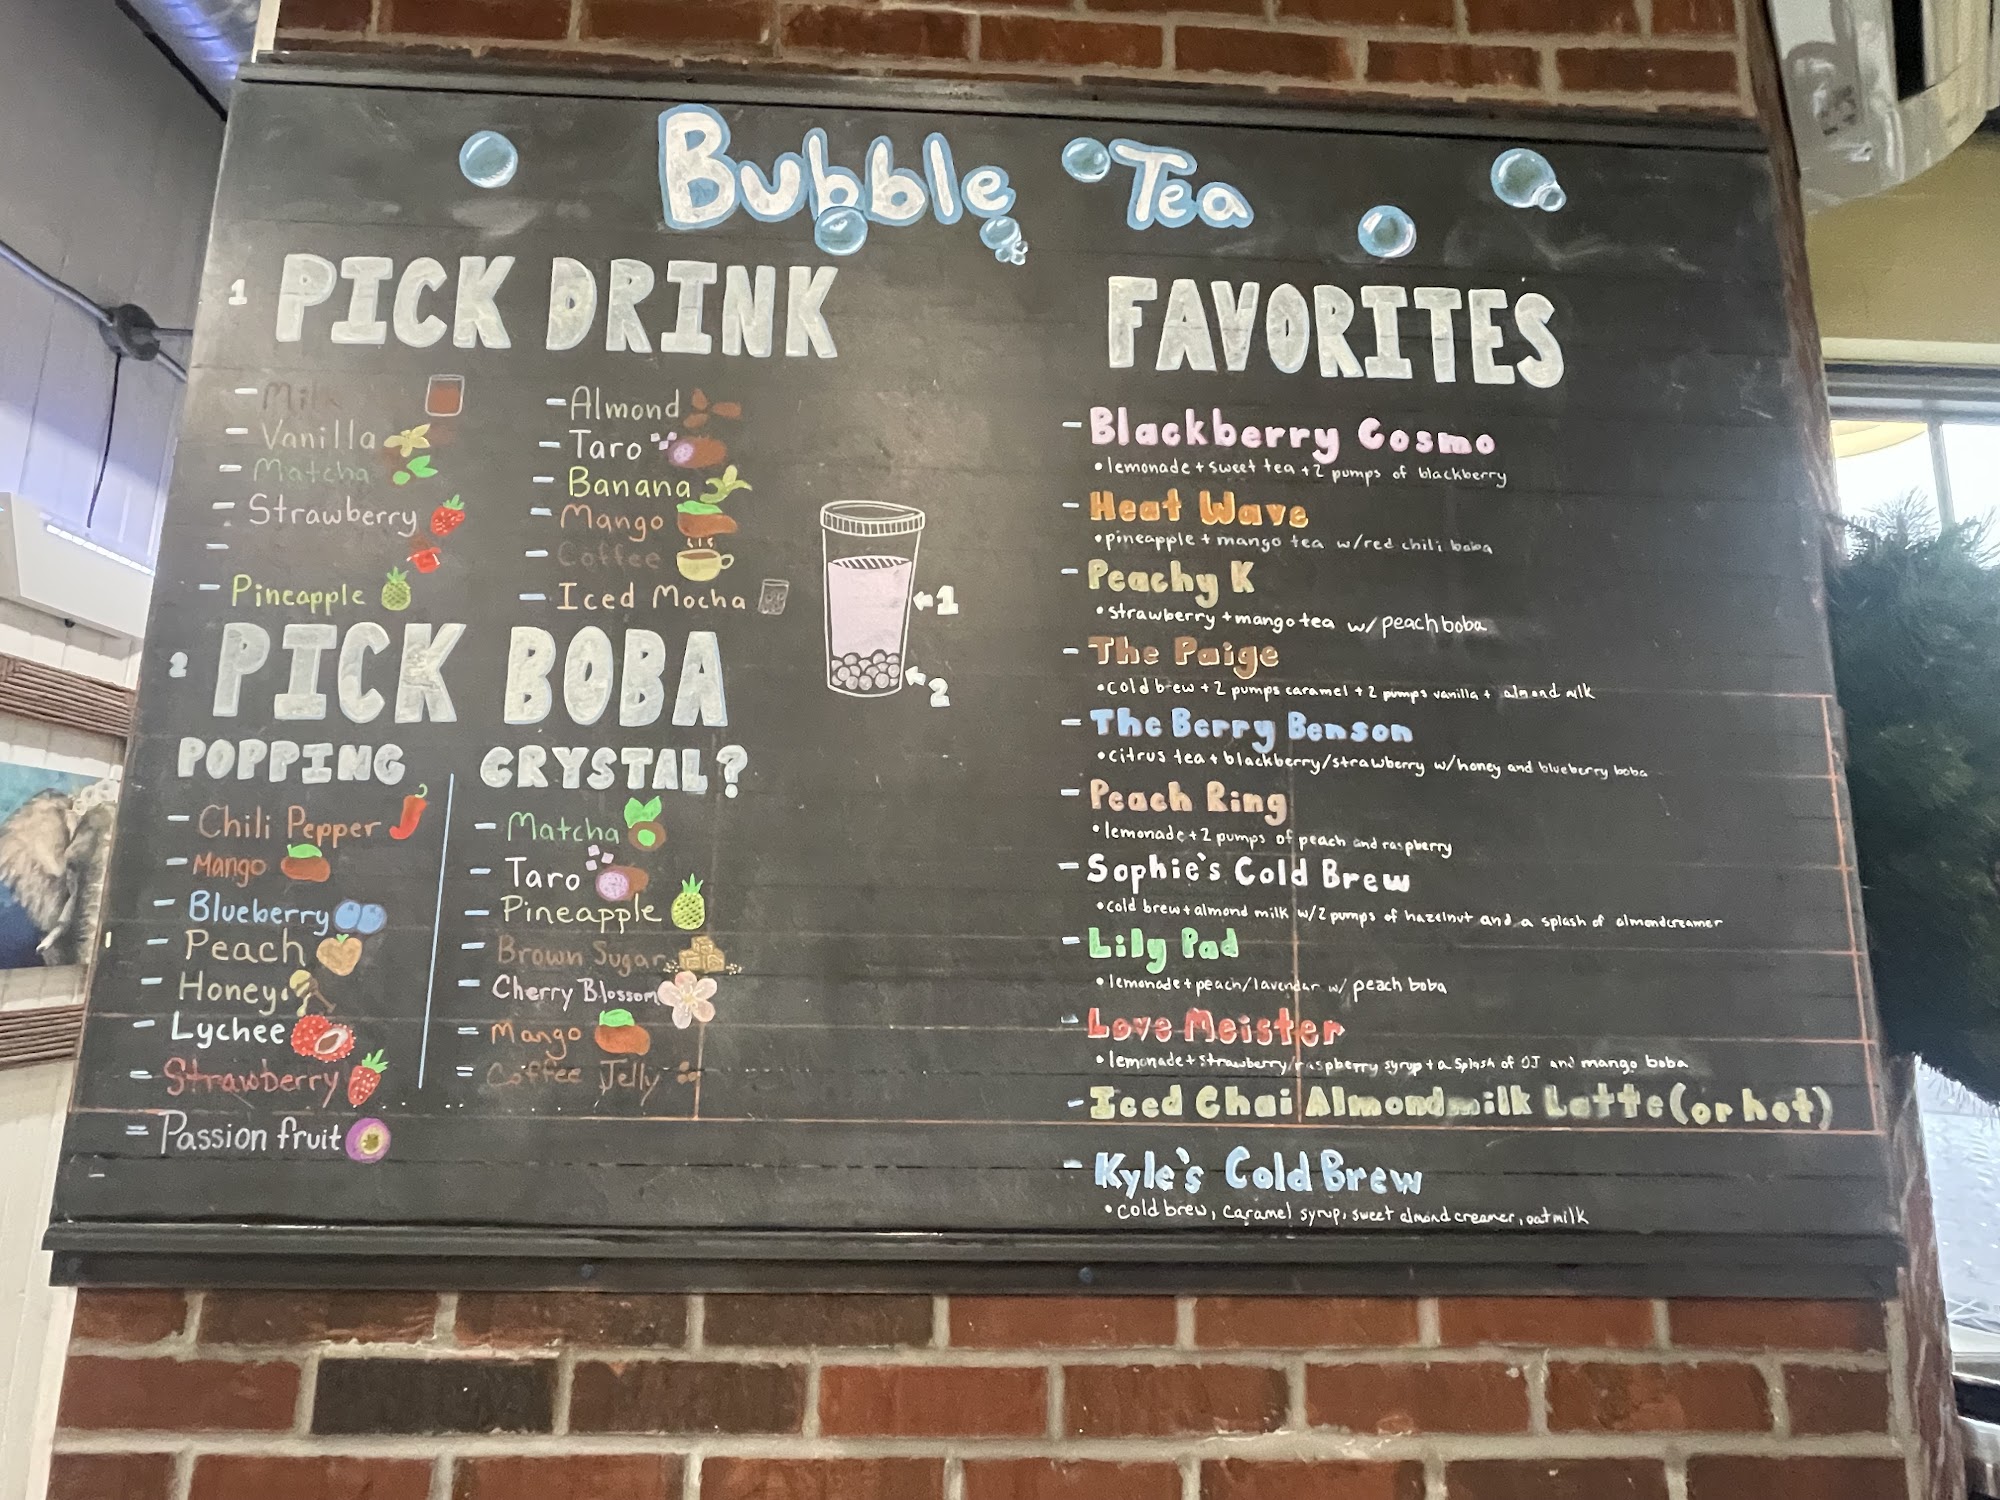 Bubble Tea
1 PICK DRINK
- Milk
- Vanilla
- Matcha
- Strawberry
-
- Pineapple
- Almond
- Taro
- Banana
- Mango
- Coffee
- Iced Mocha
1
2
2 PICK BOBA
POPPING
- Chili Pepper
- Mango
- Blueberry
- Peach
- Honey
- Lychee
- Strawberry
= Passion fruit
-
CRYSTAL?
- Matcha
- Taro
- Pineapple
- Brown Sugar
- Cherry Blossom
= Mango
= Coffee Jelly
FAVORITES
- Blackberry Cosmo
• lemonade + sweet tea + 2 pumps of blackberry
- Heat Wave
• pineapple + mango tea w/red chili boba
- Peachy K
• strawberry + mango tea w/ peach boba
- The Paige
• cold brew + 2 pumps caramel + 2 pumps vanilla + almond milk
- The Berry Benson
• citrus tea + blackberry/strawberry w/honey and blueberry boba
- Peach Ring
• lemonade + 2 pumps of peach and raspberry
- Sophie's Cold Brew
• cold brew + almond milk w/2 pumps of hazelnut and a splash of almondcreamer
- Lily Pad
• lemonade + peach/lavendar w/ peach boba
- Love Meister
• lemonade + strawberry/raspberry syrup + a splash of OJ and mango boba
- Iced Chai Almondmilk Latte (or hot)
- Kyle's Cold Brew
• cold brew, caramel syrup, sweet almond creamer, oatmilk